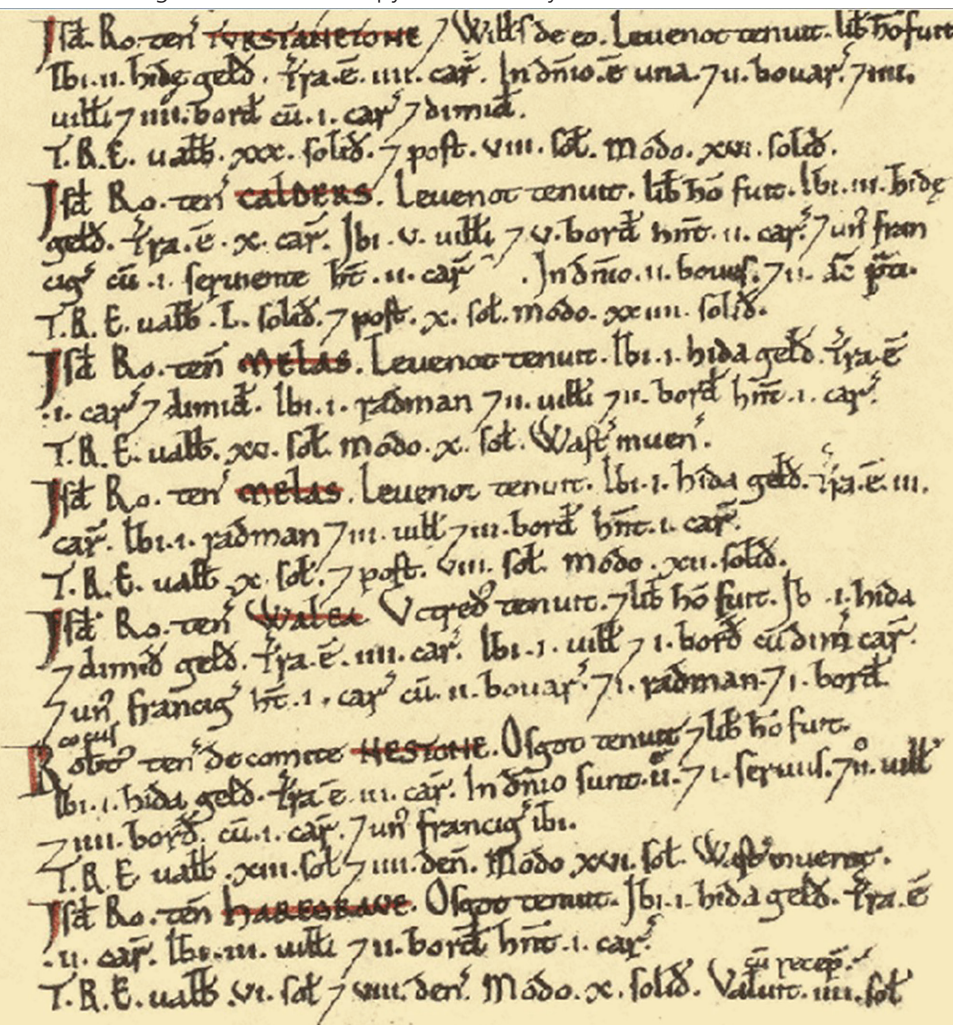 Isđ. Ro. teñ TVRSTANETONE ⁊ Willˢ de eo. Leuenot tenuit. lib hō fuit
Ibi. ii. hidę gelđ. Tra. ē. iiii. car̃. In dñio. ē una. ⁊ ii. bouar̃. ⁊ iiii.
uilłi ⁊ iiii. borđ cū. i. car̃ ⁊ dimiđ.
T.R.E. ualƀ. xxx. soliđ. ⁊ post. viii. soł. Modo. xvi. soliđ.
Isđ Ro. teñ CALDERS. Leuenot tenuit. lib hō fuit. Ibi. iii. hidę
gelđ. Tra. ē. x. car̃. Ibi. v. uilłi ⁊ v. borđ hñt. ii. car̃. ⁊ un᷒ fran
cig᷒ cū. i. seruiente ht̄. ii. car̃. In dñio. ii. boues. ⁊ ii. ac̄ p̄ti.
T.R.E. ualƀ. L. soliđ. ⁊ post. x. soł. Modo. xxiiii. soliđ.
Isđ Ro. teñ MELAS. Leuenot tenuit. Ibi. i. hida gelđ. Tra. ē
.i. car̃ ⁊ dimiđ. Ibi. i. radman ⁊ ii. uilłi ⁊ ii. borđ hñt. i. car̃.
T.R.E. ualƀ. xv. soł. Modo. x. soł. Wast᷒ inueñ.
Isđ Ro. teñ MELAS. Leuenot tenuit. Ibi. i. hida gelđ. Tra. ē. iii.
car̃. Ibi. i. radman ⁊ iii. uilł ⁊ iii. borđ hñt. i. car̃.
T.R.E. ualƀ. x. soł. ⁊ post. viii. soł. Modo. xii. soliđ.
Isđ Ro. teñ WALEA Vctređ tenuit. ⁊ lib hō fuit. Ib .i. hida
⁊ dimiđ gelđ. Tra. ē. iiii. car̃. Ibi. i. uilł ⁊ i. borđ cū dim̃ car̃.
⁊ un᷒ francig᷒ ht̄. i. car̃ cū. ii. bouar̃. ⁊ i. radman. ⁊ i. borđ.
cocus
Robt᷒ teñ de comite NESTONE. Osgot tenuit ⁊ lib hō fuit.
Ibi. i. hida gelđ. Tra ē iii. car̃. In dñio sunt. ii. ⁊ i. seruus. ⁊ ii. uilł
⁊ iiii. borđ. cū. i. car̃. ⁊ un᷒ francig᷒ ibi.
T.R.E ualƀ. xiii. soł ⁊ iiii. deñ. Modo xvi. soł. Wast᷒ inuenit.
Isđ Ro. teñ HAREGRAVE. Osgot tenuit. Ibi. i. hida gelđ. Tra. ē
.ii. car̃. Ibi. iii. uilłi ⁊ ii. borđ hñt. i. car̃.
cū recep̃.
T.R.E. ualƀ. vi. soł ⁊ viii. deñ. Modo. x. soliđ. Valuit. iiii. soł